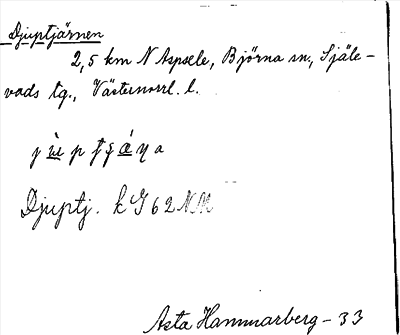 Djuptjärnen
2,5 km N Aspsele, Björna sn, Själe-
vads tg., Västernorrl. l.
Djuptj. k G 62 NN
Asta Hammarberg - 33